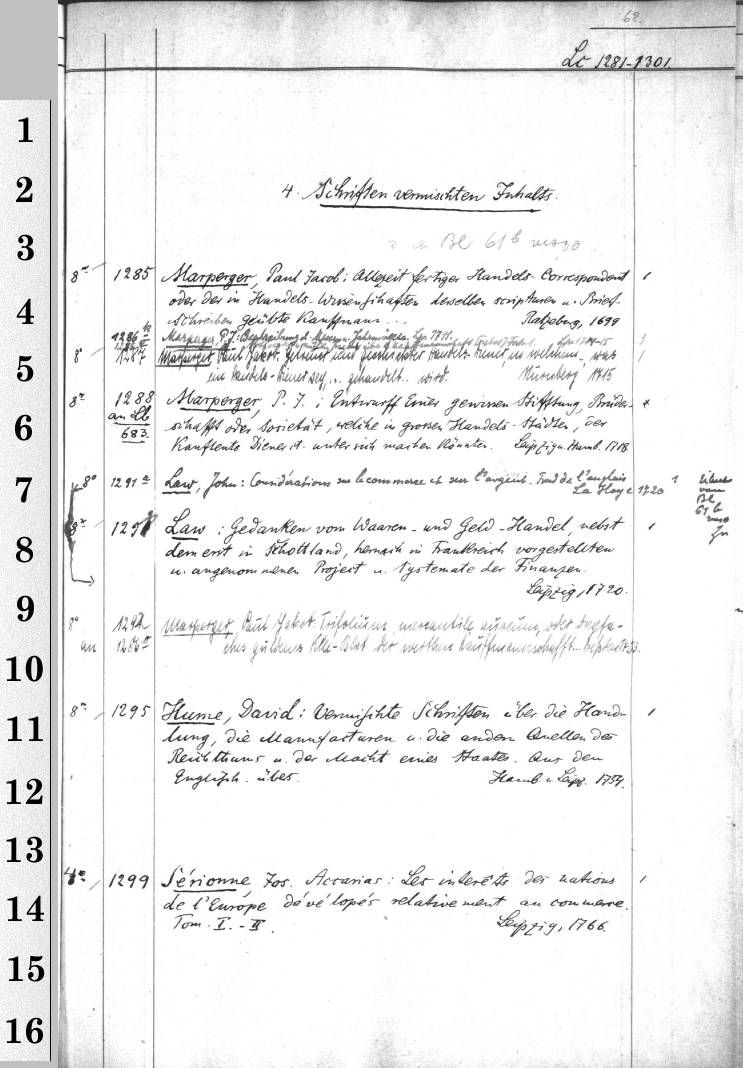 62.
Lc 1281-1301
1
2
3
4
5
6
7
8
9
10
11
12
13
14
15
16
4. Schriften vermischten Inhalts.
s. a. Bl 61b verso
8° 1285 Marperger, Paul Jacob: Allezeit fertiger Handels-Correspondent
oder der in Handels-Wissenschaften deroselben scripturen u. Brief-
Schreiben geübte Kauffmann ... Ratzeburg, 1699
1286 Marperger, P. J.: Beschreibung d. Messen u. Jahrmärkte. Lpz 1711.
8° 1287 Marperger, Paul Jakob: Getreuer und geschickter Handels-Diener, in welchem, was
ein Handels-Diener sey, .. gehandelt .. wird. Nürnberg 1715
8° 1288 Marperger, P. J.: Entwurff einer gewissen Stifftung, Brüder-
an Lb schafft oder Societät, welche in grossen Handels-Städten, der
683. Kauffleute Diener ... unter sich machen könnten. Leipzig u. Hamb. 1718
8° 1291a Law, John: Considérations sur le commerce et sur l'argent. Trad de l'anglais
La Haye 1720
8° Law: Gedanken vom Waaren- und Geld-Handel, nebst
dem erst in Schottland, hernach in Franckreich vorgestellten
u. angenommenen Project u. Systemate der Finanzen.
Leipzig, 1720.
8° 1292 Marperger, Paul Jakob: Trifolium mercantile aureum, oder dreyfa-
an ches güldenes Klee-Blat der werthen Kauffmannschafft...
8° 1295 Hume, David: Vermischte Schriften über die Hand-
lung, die Manufacturen u. die andern Quellen des
Reichthums u. der Macht eines Staates. Aus dem
Englisch. übers. Hamb. u. Leipz. 1754.
4° 1299 Sérionne, Jos. Accarias: Les interêts des nations
de l'Europe dévélopés relativement au commerce.
Tom. I. - II. Leipzig, 1766.